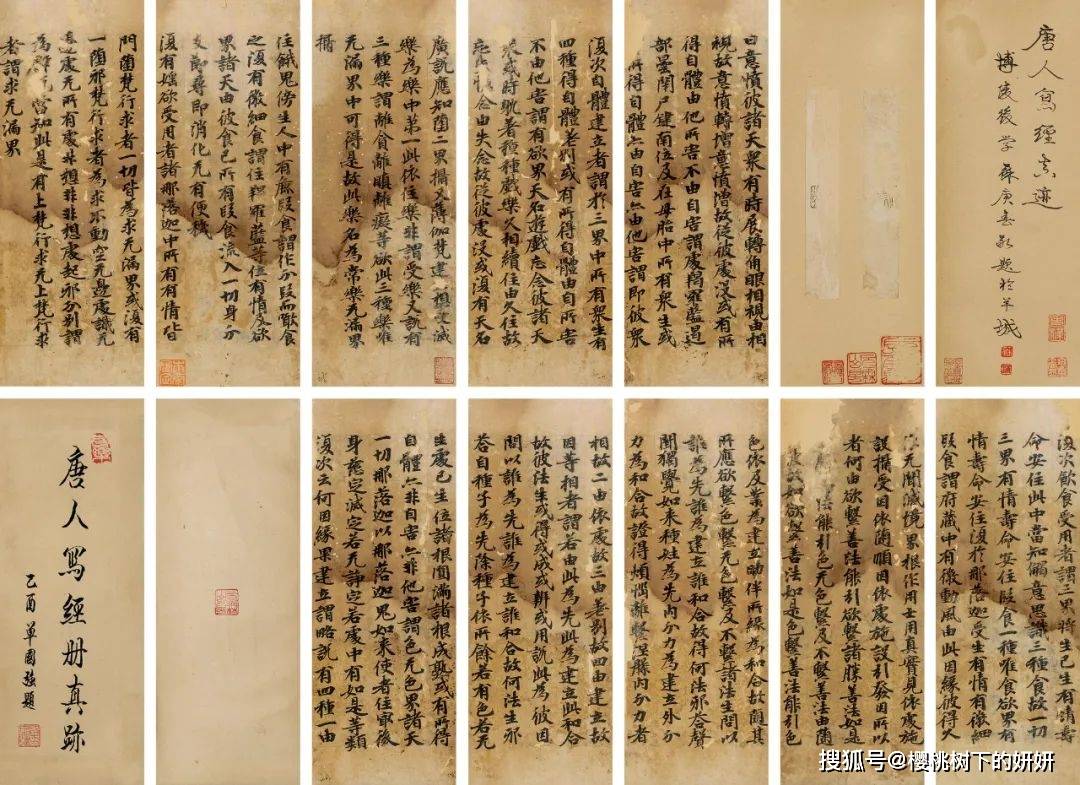 唐人寫經真迹
博陵後學
庚
敬題於羊城
曰意憤彼諸天衆有時展轉角眼相視由相
視故意憤轉增意憤增故從彼處沒或有所
得自體由他所害不由自害謂處羯羅藍遏
部曇閇尸鍵南位及在母胎中所有衆生或
有所得自體亦由自害亦由他害謂即彼衆
復次自體建立者謂於三界中所有衆生有
四種得自體差別或有所得自體由自所害
不由他害謂有欲界天名遊戲忘念彼諸天
衆或時躭著種種戲樂久相續住由久住故
忘失憶念由失念故從彼處沒或復有天名
廣説應知墮三界攝又薄伽梵建立想受滅
樂為樂中第一此依住樂非謂受樂又説有
三種樂謂離貪離瞋離癡等欲此三種樂唯
无漏界中可得是故此樂名為常樂无漏界
攝
住餓鬼傍生人中有麁段食謂作分段而噉食
之復有微細食謂住羯羅藍等位有情及欲
界諸天由彼食已所有段食流入一切身分
支節尋即消化无有便穢
復有婬欲受用者諸那落迦中所有有情皆
門墮梵行求者一切皆為求无漏界或復有
一墮邪梵行求者為求不動空无邊處識无
邊處无所有處非想非非想處起邪分別謂
為解脫當知此是有上梵行求无上梵行求
者謂求无漏界
復次飲食受用者謂三界將生已生有情壽
命安住此中當知觸意思識三種食故一切
三界有情壽命安住段食一種唯令欲界有
情壽命安住復於那落迦受生有情有微細
段食謂府藏中有微動風由此因緣彼得久
无間滅境界根作用士用真實見依處施
設攝受因依隨順因依處施設引發因所以
者何由欲繫善法能引欲繫諸勝善法如是
法能引色无色繫及不繫善法由隨
彼故如欲繫善法如是色繫善法能引色
色依及業為建立助伴所緣為和合故隨其
所應欲繫色繫无色繫及不繫諸法生問以
誰為先誰為建立誰和合故得何法邪答聲
聞獨覺如來種姓為先內分力為建立外分
力為和合故證得煩惱離繫涅槃內分力者
相故二由依處故三由差別故四由建立故
因等相者謂若由此為先此為建立此和合
故彼法生或得或成或辦或用説此為彼因
問以誰為先誰為建立誰和合故何法生邪
答自種子為先除種子依所餘若有色若无
生處已生位諸根圓滿諸根成熟或有所得
自體亦非自害亦非他害謂色无色界諸天
一切那落迦似那落迦鬼如來使者住最後
身慈定滅定若无諍定若處中有如是等類
復次云何因緣果建立謂略説有四種一由
唐人寫經冊真跡
乙酉單國強題
搜狐号@樱桃树下的妍妍